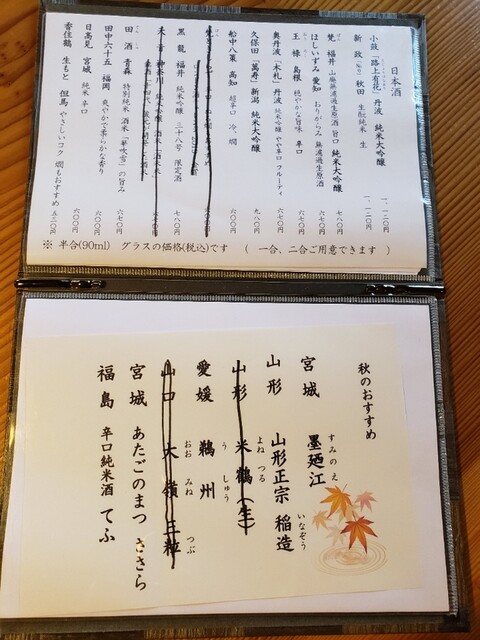 日本酒
小鼓「路上有花」丹波 純米大吟醸 一、一二〇円
新政(No.6) 秋田 生酛純米 生 一、一二〇円
梵 福井 山廃無濾過生原酒 旨口 純米大吟醸 七八〇円
ほしいずみ 愛知 おりがらみ 無濾過生原酒 六七〇円
王祿 島根 穏やかな旨味 辛口 六七〇円
奥丹波「木札」丹波 純米吟醸 やや辛口 フルーティ 六七〇円
久保田「萬寿」新潟 純米大吟醸 九八〇円
船中八策 高知 超辛口 冷、燗 六〇〇円
黒龍 福井 純米吟醸 三十八号 限定酒 七八〇円
田酒 青森 特別純米 酒米「華吹雪」の旨み 六七〇円
田中六十五 福岡 爽やかで柔らかな香り 六〇〇円
日高見 宮城 純米 辛口 六〇〇円
香住鶴 生もと 但馬 やさしいコク 燗もおすすめ 五三〇円
※ 半合(90ml) グラスの価格(税込)です ( 一合、二合ご用意できます )
秋のおすすめ
宮城 墨廼江
すみのえ
山形 山形正宗 稲造
いなぞう
山形 米鶴(生)
よねつる
愛媛 鵜州
うしゅう
山口 大嶺三粒
おおみね つぶ
宮城 あたごのまつ ささら
福島 辛口純米酒 てふ